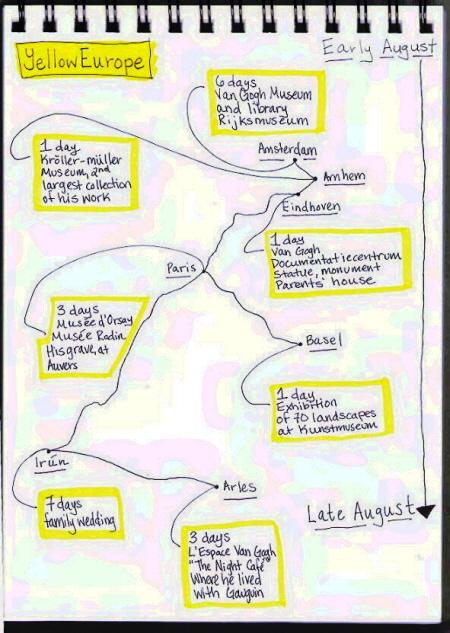 Early August
YellowEurope
6 days
Van Gogh Museum
and library
Rijksmuseum
1 day
Kröller-müller
Museum, 2nd
largest collection
of his work
Amsterdam
Arnhem
Eindhoven
1 day
Van Gogh
Documentatiecentrum
Statue, monument
Parents' house
Paris
3 days
Musée d'Orsay
Musée Rodin
His grave, at
Auvers
Basel
1 day
Exhibition
of 70 landscapes
at Kunstmuseum
Irún
7 days
family wedding
Arles
3 days
L'Espace Van Gogh
"The Night Café"
Where he lived
with Gauguin
Late August